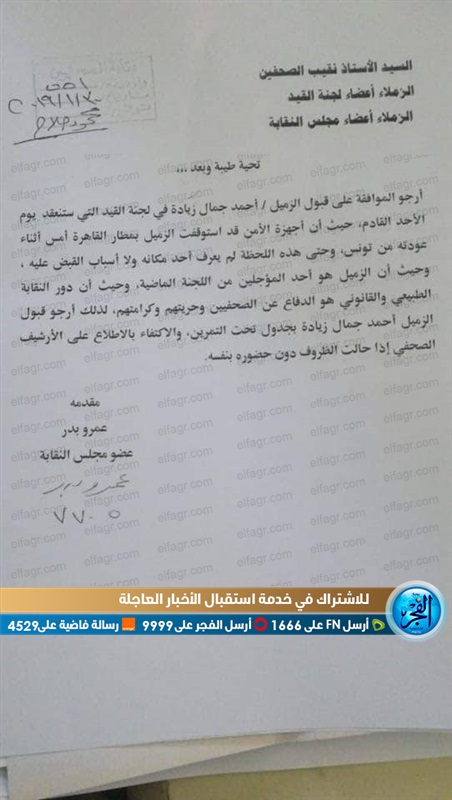 السيد الأستاذ نقيب الصحفيين
الزملاء أعضاء لجنة القيد
الزملاء أعضاء مجلس النقابة
تحية طيبة وبعد ...
أرجو الموافقة على قبول الزميل / أحمد جمال زيادة في لجنة القيد التي ستنعقد يوم
الأحد القادم، حيث أن أجهزة الأمن قد استوقفت الزميل بمطار القاهرة أمس أثناء
عودته من تونس، وحتى هذه اللحظة لم يعرف أحد مكانه ولا أسباب القبض عليه ،
وحيث أن الزميل هو أحد المؤجلين من اللجنة الماضية، وحيث أن دور النقابة
الطبيعي والقانوني هو الدفاع عن الصحفيين وحريتهم وكرامتهم، لذلك أرجو قبول
الزميل أحمد جمال زيادة بجدول تحت التمرين، والاكتفاء بالاطلاع على الأرشيف
الصحفي إذا حالت الظروف دون حضوره بنفسه.
مقدمه
عمرو بدر
عضو مجلس النقابة
عمرو بدر
٧٧٠٥
elfagr.com
للاشتراك في خدمة استقبال الأخبار العاجلة
أرسل FN على 1666
أرسل الفجر على 9999
رسالة فاضية على 4529
الفجر